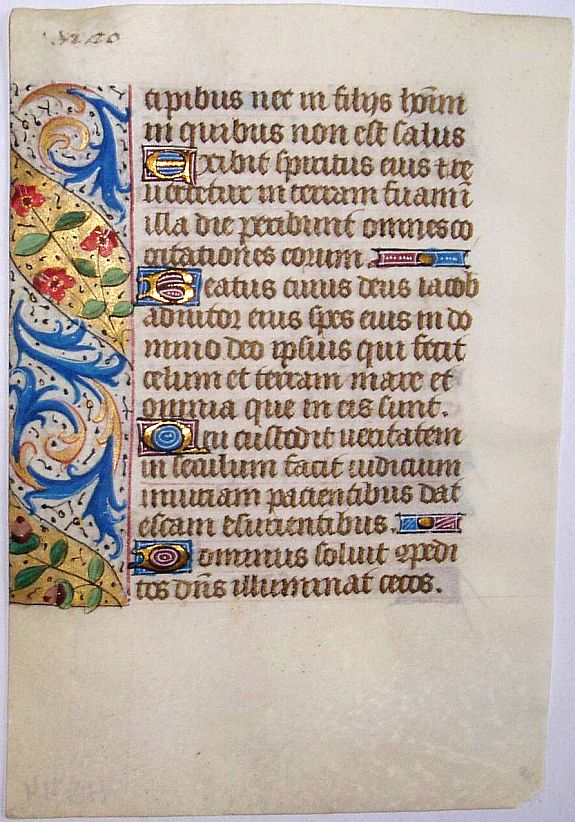 cipibus nec in filijs hoīm
in quibus non est salus
Exibit spiritus eius et re
uertetur in terram suam ī
illa die peribunt omnes co
gitationes eorum.
Beatus cuius deus iacob
adiutor eius spes eius in do
mino deo ipsius qui fecit
celum et terram mare et
omnia que in eis sunt.
Qui custodit ueritatem
in seculum facit iudicium
iniuriam pacientibus dat
escam esurientibus.
Dominus soluit conpedi
tos dn̄s illuminat cecos.